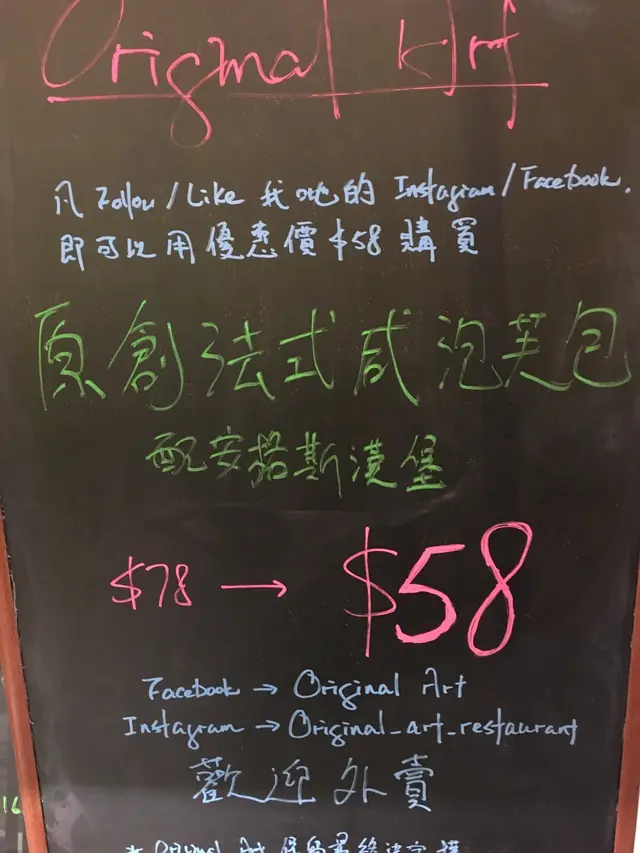 Original Art
凡 Follow/Like 我哋的 Instagram/Facebook,
即可以用優惠價$58購買
原創法式咸泡芙包
配安格斯漢堡
$78 → $58
Facebook → Original Art
Instagram → Original_art_restaurant
歡迎外賣
* Original Art 保留最終決定權
16